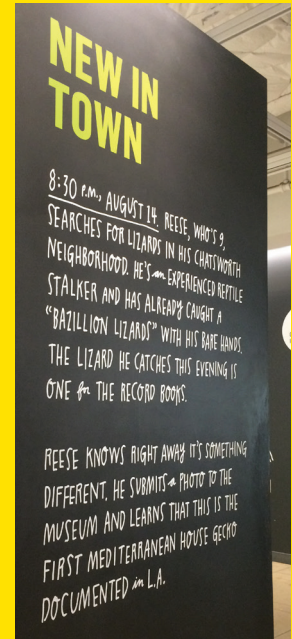 NEW IN
TOWN
8:30 P.M., AUGUST 14. REESE, WHO'S 9,
SEARCHES FOR LIZARDS IN HIS CHATSWORTH
NEIGHBORHOOD. HE'S an EXPERIENCED REPTILE
STALKER AND HAS ALREADY CAUGHT A
"BAZILLION LIZARDS" WITH HIS BARE HANDS.
THE LIZARD HE CATCHES THIS EVENING IS
ONE for THE RECORD BOOKS.
REESE KNOWS RIGHT AWAY IT'S SOMETHING
DIFFERENT. HE SUBMITS a PHOTO TO THE
MUSEUM AND LEARNS THAT THIS IS THE
FIRST MEDITERRANEAN HOUSE GECKO
DOCUMENTED in L.A.